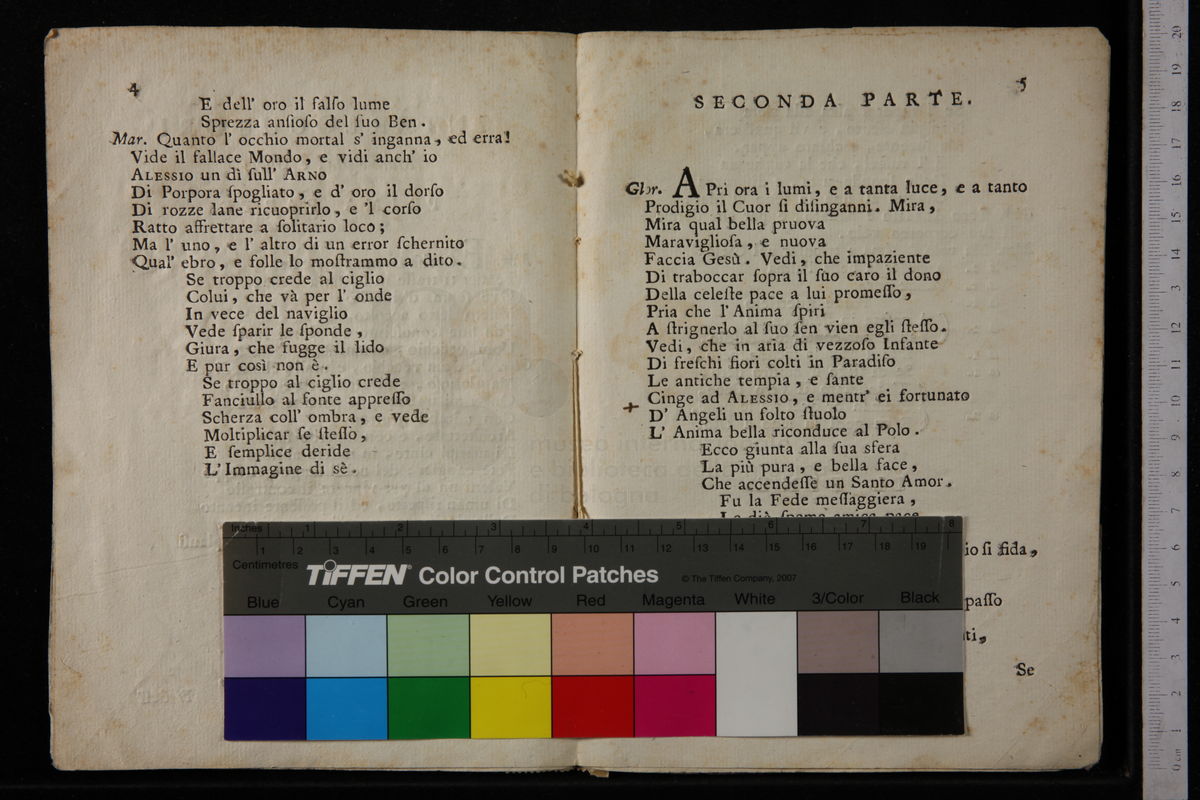 4
E dell' oro il falſo lume
Sprezza anſioſo del ſuo Ben.
Mar. Quanto l' occhio mortal s' inganna, ed erra!
Vide il fallace Mondo, e vidi anch' io
ALESSIO un dì ſull' ARNO
Di Porpora ſpogliato, e d' oro il dorſo
Di rozze lane ricuoprirlo, e 'l corſo
Ratto affrettare a ſolitario loco;
Ma l' uno, e l' altro di un error ſchernito
Qual' ebro, e folle lo moſtrammo a dito.
Se troppo crede al ciglio
Colui, che và per l' onde
In vece del naviglio
Vede ſparir le ſponde,
Giura, che fugge il lido
E pur così non è.
Se troppo al ciglio crede
Fanciullo al fonte appreſſo
Scherza coll' ombra, e vede
Moltiplicar ſe ſteſſo,
E ſemplice deride
L' Immagine di sè.
5
SECONDA PARTE.
Glor. APri ora i lumi, e a tanta luce, e a tanto
Prodigio il Cuor ſi diſinganni. Mira,
Mira qual bella pruova
Maraviglioſa, e nuova
Faccia Gesù. Vedi, che impaziente
Di traboccar ſopra il ſuo caro il dono
Della celeſte pace a lui promeſſo,
Pria che l' Anima ſpiri
A ſtrignerlo al ſuo ſen vien egli ſteſſo.
Vedi, che in aria di vezzoſo Infante
Di freſchi fiori colti in Paradiſo
Le antiche tempia, e ſante
Cinge ad ALESSIO, e mentr' ei fortunato
D' Angeli un folto ſtuolo
L' Anima bella riconduce al Polo.
Ecco giunta alla ſua sfera
La più pura, e bella face,
Che accendeſſe un Santo Amor.
Fu la Fede meſſaggiera,
io ſi fida,
paſſo
ti,
Se
Inches 1 2 3 4 5 6 7 8
1 2 3 4 5 6 7 8 9 10 11 12 13 14 15 16 17 18 19
Centimetres
TIFFEN® Color Control Patches
© The Tiffen Company, 2007
Blue Cyan Green Yellow Red Magenta White 3/Color Black
20
19
18
17
16
15
14
13
12
11
10
9
8
7
6
5
4
3
2
1
0 cm